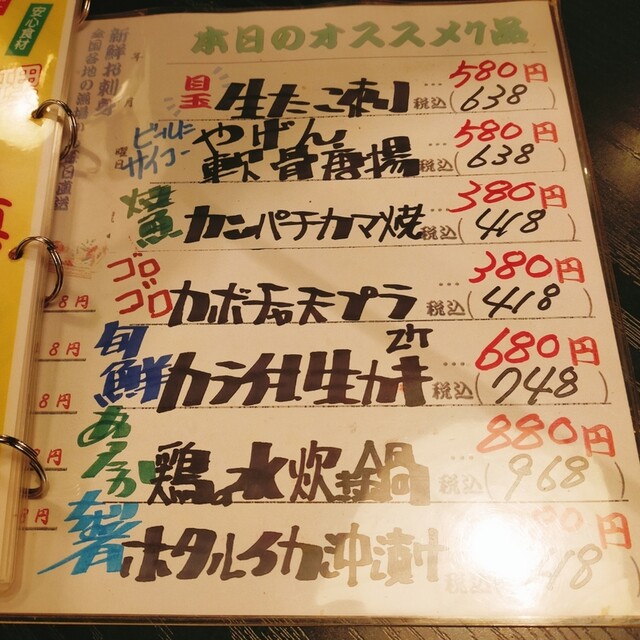 安心食材
本日のオススメ品
新鮮お刺身
年 月 曜日
目玉 生たこ刺 … 580円
税込(638)
ビールにサイコー やげん軟骨唐揚 … 580円
税込(638)
焼魚 カンパチカマ焼 … 380円
税込(418)
ゴロゴロ カボチャ天プラ … 380円
税込(418)
旬鮮 カラ付生カキ 2ケ … 680円
税込(748)
あったか 鶏の水炊き鍋 … 880円
税込(968)
ホタルイカ沖漬け 80円
税込 18)
8円
8円
8円
8円
8円